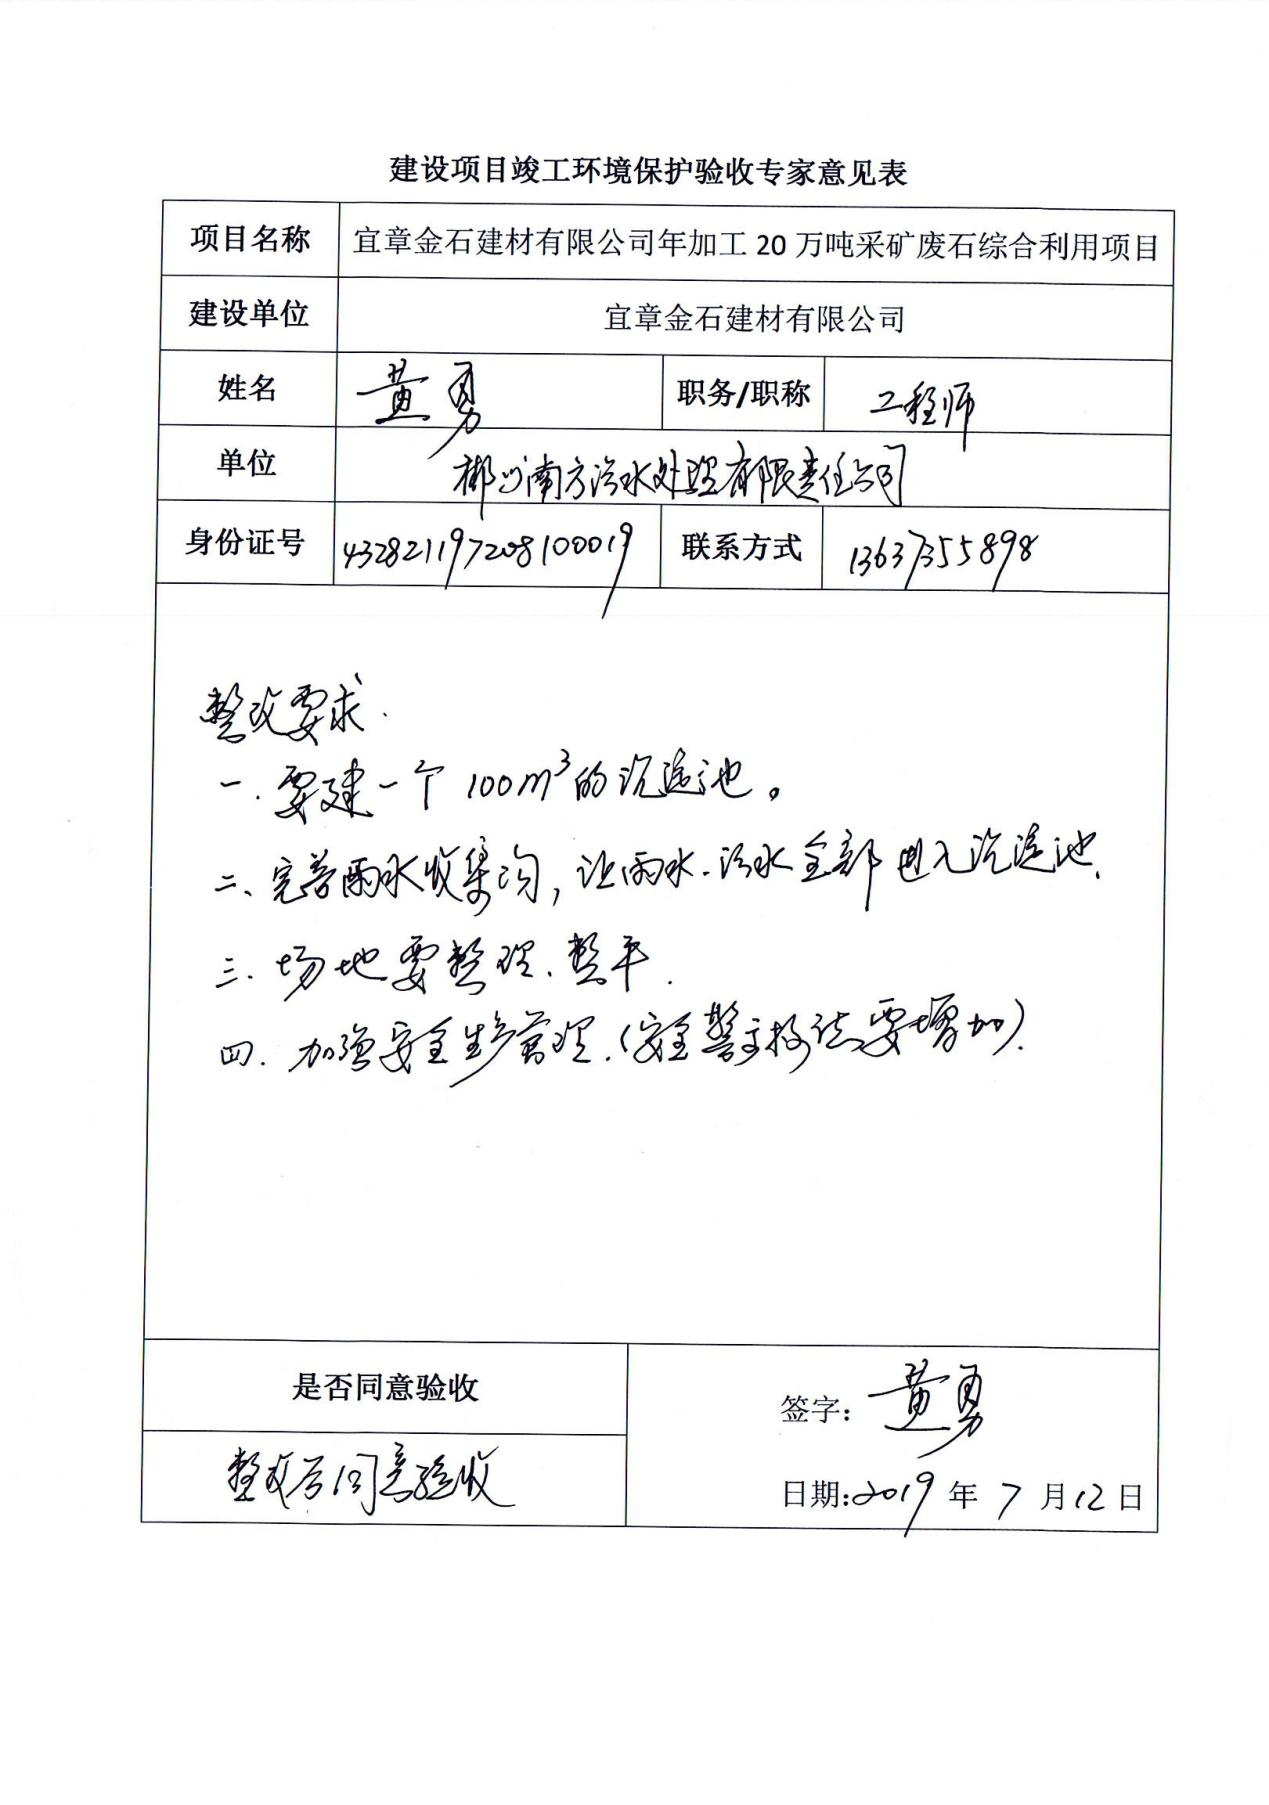 建设项目竣工环境保护验收专家意见表
项目名称 宜章金石建材有限公司年加工 20 万吨采矿废石综合利用项目
建设单位 宜章金石建材有限公司
姓名 黄勇 职务/职称 工程师
单位 郴州南方污水处理有限责任公司
身份证号 432821197208100019 联系方式 13637355898
整改要求.
一. 要建一个 100m³的沉淀池。
二、完善雨水收集沟，让雨水.污水全部进入沉淀池.
三. 场地要整理、整平.
四. 加强安全生产管理.(安全警示 要增加).
是否同意验收
签字: 黄勇
整改后同意验收
日期:2019 年 7 月 12 日